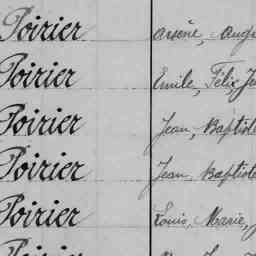 Poirier Arsène, Augu
Poirier Emile, Félix, Ju
Poirier Jean, Baptiste
Poirier Jean, Baptiste
Poirier Louis, Marie, J
Poirier